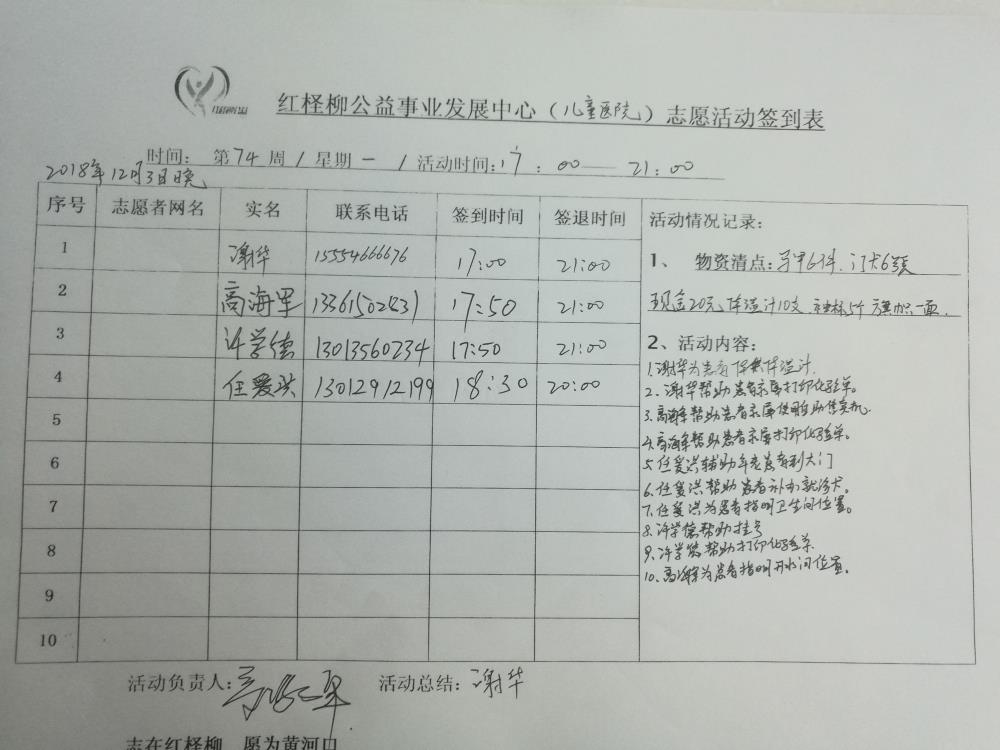 红柽柳公益事业发展中心（儿童医院）志愿活动签到表
时间： 第74周 / 星期一 / 活动时间：17：00—21：00
2018年12月3日晚
序号 志愿者网名 实名 联系电话 签到时间 签退时间 活动情况记录：
1 谢华 15554666676 17:00 21:00
1、 物资清点：马甲6件、门卡6张
2 高海军 13361502431 17:50 21:00
现金20元 体温计10支 旗帜一面
3 许学德 13013560234 17:50 21:00
2、活动内容：
4 任爱洪 13012912199 18:30 20:00
1.谢华为患者提供体温计.
2、谢华帮助患者家属打印化验单。
3.高海军帮助患者家属使用自助售卖机.
4.高海军帮助患者家属打印化验单。
5
5.任爱洪辅助年老患者到大门
6
6、任爱洪帮助患者补办就诊卡。
7
7.任爱洪为患者指明卫生间位置。
8.许学德帮助挂号
8
9.许学德帮助打印化验单
10.高海军为患者指明开水间位置.
9
10
活动负责人：高海军 活动总结：谢华
志在红柽柳 愿为黄河口